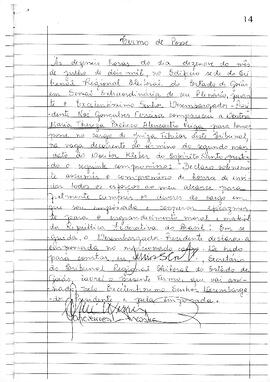 14
Termo de Posse
Às dezenove horas do dia dezenove do mês
de julho de dois mil, no Edifício sede do Tri
bunal Regional Eleitoral do Estado de Goiás
em Sessão Extraordinária de seu Plenário, peran
te o Excelentíssimo Senhor Desembargador-Pre
sidente Noé Gonçalves Ferreira compareceu a Doutora
Maria Thereza Pacheco Alencastro Veiga para tomar
posse no cargo de Juíza Titular deste Tribunal,
na vaga decorrente do término do segundo man
dato do Doutor do Espírito Santo
o seguinte compromisso: Declaro solenemen
te assumir o compromisso de honra de en
vidar todos os esforços ao meu alcance para
fielmente cumprir os deveres do cargo em
que sou empossada e assegurar
te para o engrandecimento moral e material
da República Federativa do Brasil! Em se
guida, o Desembargador-Presidente declarou-a
empossada no referido cargo. E,
para constar, eu Secretário
do Tribunal Regional Eleitoral do Estado de
Goiás, lavrei o presente Termo, que vai assi
nado pelo Excelentíssimo Senhor Desembarga
dor-Presidente e pela empossada.